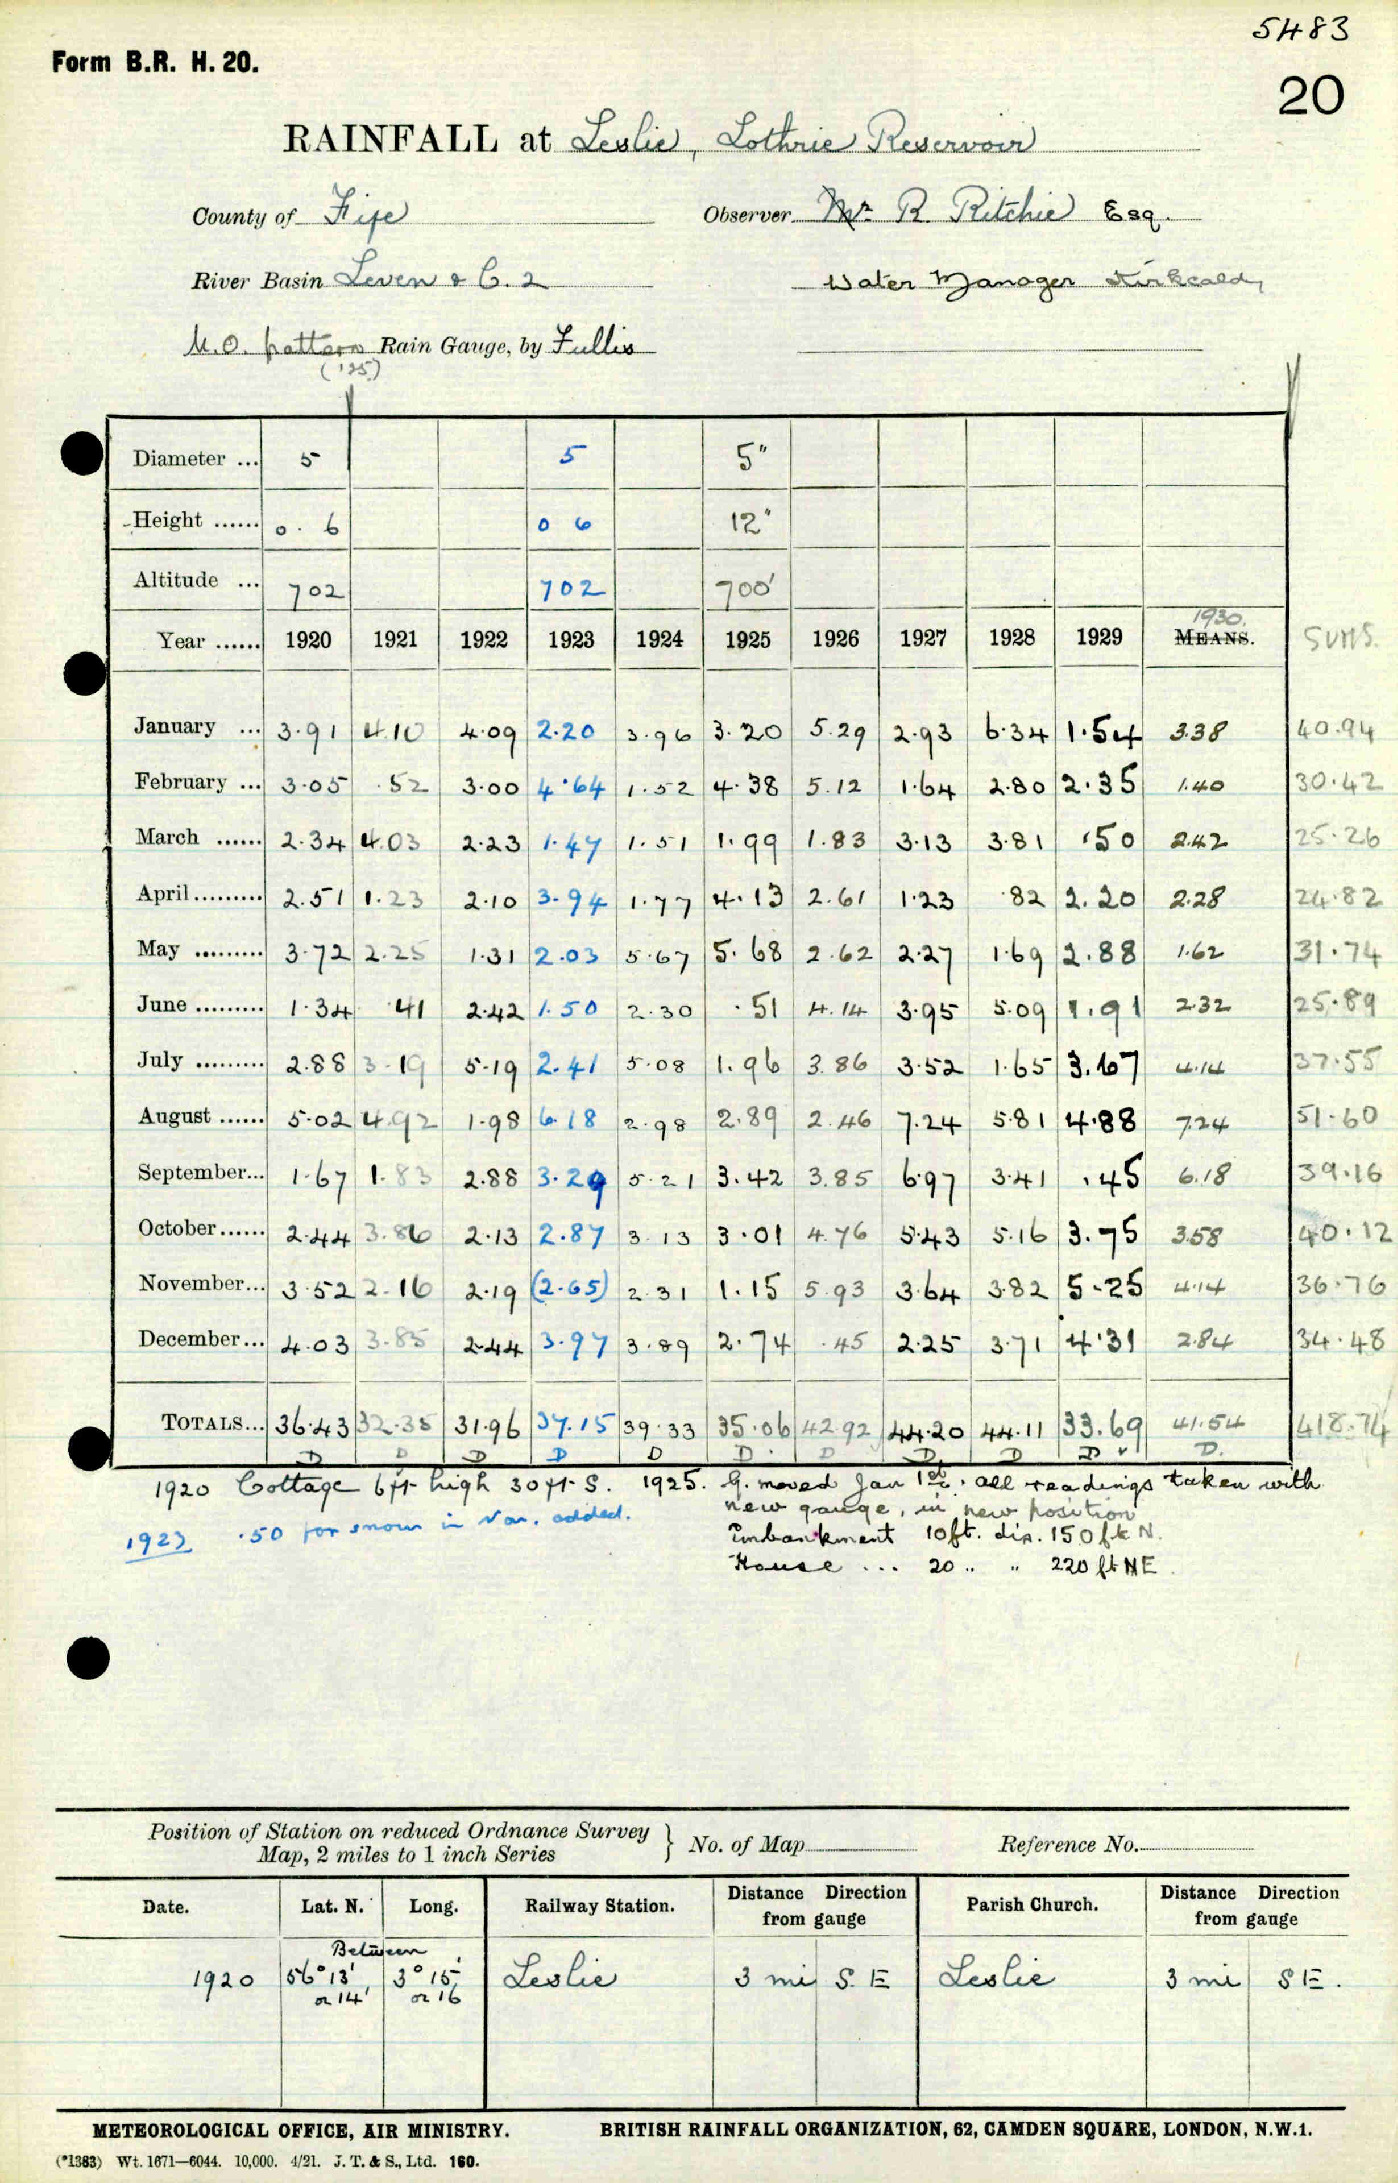 5483
Form B.R. H. 20.
20
RAINFALL at Leslie, Lothrie Reservoir
County of Fife Observer Mr R. Ritchie Esq.
River Basin Leven & C. 2 Water Manager Kirkcaldy
M.O. pattern Rain Gauge, by Fullis
(125)
Diameter ... 5 5 5"
Height ...... 0. 6 0 6 12"
Altitude ... 702 702 700'
1930.
Year ...... 1920 1921 1922 1923 1924 1925 1926 1927 1928 1929 MEANS. SUMS.
January ... 3.91 4.10 4.09 2.20 3.96 3.20 5.29 2.93 6.34 1.54 3.38 40.94
February ... 3.05 .52 3.00 4.64 1.52 4.38 5.12 1.64 2.80 2.35 1.40 30.42
March ...... 2.34 4.03 2.23 1.47 1.51 1.99 1.83 3.13 3.81 .50 2.42 25.26
April ......... 2.51 1.23 2.10 3.94 1.77 4.13 2.61 1.23 .82 2.20 2.28 24.82
May ......... 3.72 2.25 1.31 2.03 5.67 5.68 2.62 2.27 1.69 2.88 1.62 31.74
June ......... 1.34 .41 2.42 1.50 2.30 .51 4.14 3.95 5.09 1.91 2.32 25.89
July ......... 2.88 3.19 5.19 2.41 5.08 1.96 3.86 3.52 1.65 3.67 4.14 37.55
August ...... 5.02 4.92 1.98 6.18 2.98 2.89 2.46 7.24 5.81 4.88 7.24 51.60
September... 1.67 1.83 2.88 3.29 5.21 3.42 3.85 6.97 3.41 .45 6.18 39.16
October ...... 2.44 3.86 2.13 2.87 3.13 3.01 4.76 5.43 5.16 3.75 3.58 40.12
November... 3.52 2.16 2.19 (2.65) 2.31 1.15 5.93 3.64 3.82 5.25 4.14 36.76
December... 4.03 3.85 2.44 3.97 3.89 2.74 .45 2.25 3.71 4.31 2.84 34.48
TOTALS... 36.43 32.35 31.96 37.15 39.33 35.06 42.92 44.20 44.11 33.69 41.54 418.74
D D D D D D D D D D D.
1920 Cottage 6ft high 30ft S. 1925. G. moved Jan 1st. all readings taken with
new gauge, in new position
1923 .50 for snow in Nov. added.
Embankment 10ft. dis. 150ft N.
House ... 20 " " 220 ft NE.
Position of Station on reduced Ordnance Survey
Map, 2 miles to 1 inch Series } No. of Map Reference No.
Date. Lat. N. Long. Railway Station. Distance from gauge Direction Parish Church. Distance from gauge Direction
Between
1920 56° 13' 3° 15' Leslie 3 mi S. E Leslie 3 mi S E.
or 14' or 16
METEOROLOGICAL OFFICE, AIR MINISTRY. BRITISH RAINFALL ORGANIZATION, 62, CAMDEN SQUARE, LONDON, N.W.1.
(*1383) Wt. 1671—6044. 10,000. 4/21. J. T. & S., Ltd. 160.